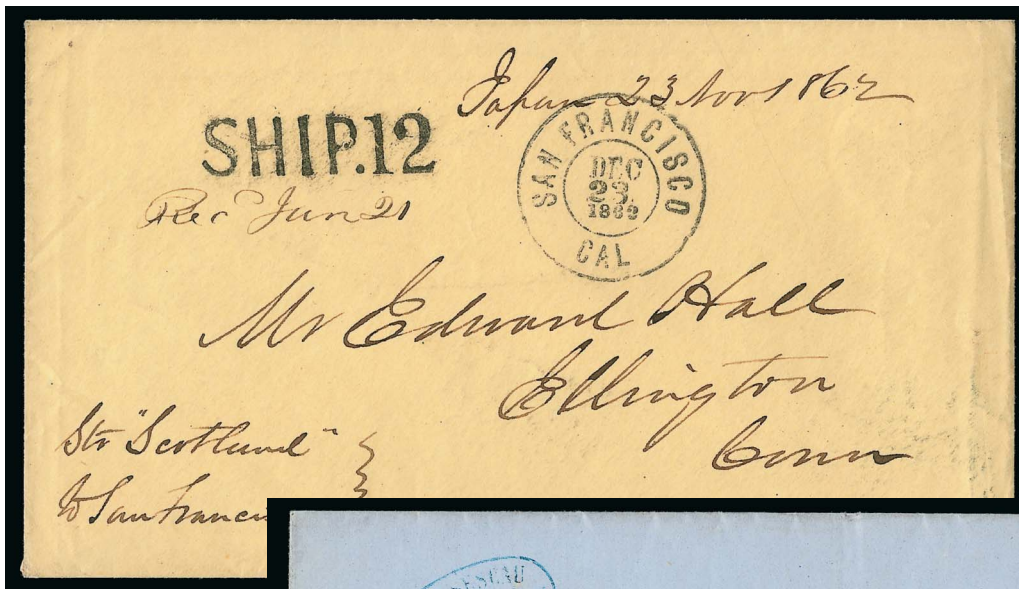 Japan 23 Nov 1862
SHIP.12
SAN FRANCISCO
DEC
23
1862
CAL
Rec Jan 21
Mr Edward Hall
Ellington
Conn
Str "Scotland"
to San Franc